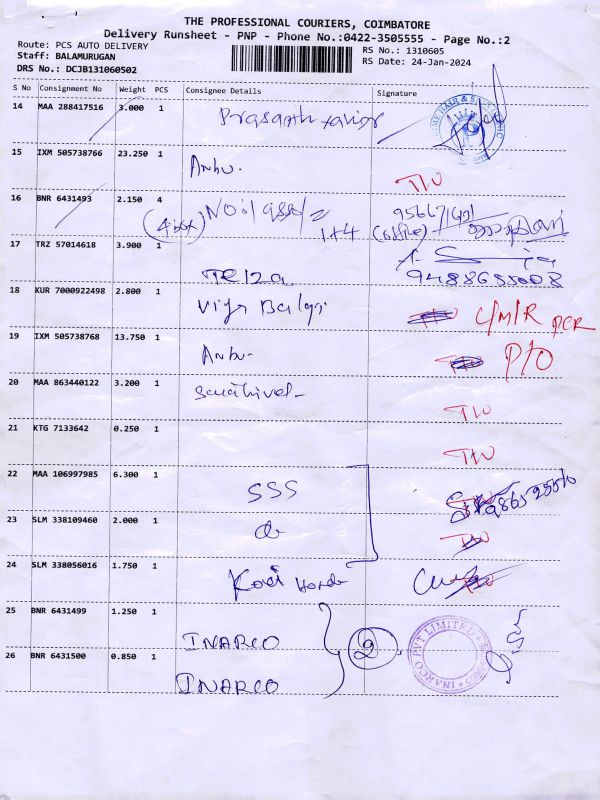 THE PROFESSIONAL COURIERS, COIMBATORE
Delivery Runsheet - PNP - Phone No.:0422-3505555 - Page No.:2
Route: PCS AUTO DELIVERY
RS No.: 1310605
Staff: BALAMURUGAN
RS Date: 24-Jan-2024
DRS No.: DCJB131060502
S No Consignment No Weight PCS Consignee Details Signature
14 MAA 288417516 3.000 1
15 IXM 505738766 23.250 1 Anbu. T/W
16 BNR 6431493 2.150 4
(4 box) 1+4
17 TRZ 57014618 3.900 1
9488655008
18 KUR 7000922498 2.800 1 C/M/R PCR
19 IXM 505738768 13.750 1 Anbu- P/O
20 MAA 863440122 3.200 1 T/W
21 KTG 7133642 0.250 1 T/W
22 MAA 106997985 6.300 1 SSS
23 SLM 338109460 2.000 1 do
24 SLM 338056016 1.750 1
25 BNR 6431499 1.250 1 INARCO
2
INARCO PVT LIMITED
26 BNR 6431500 0.850 1 INARCO